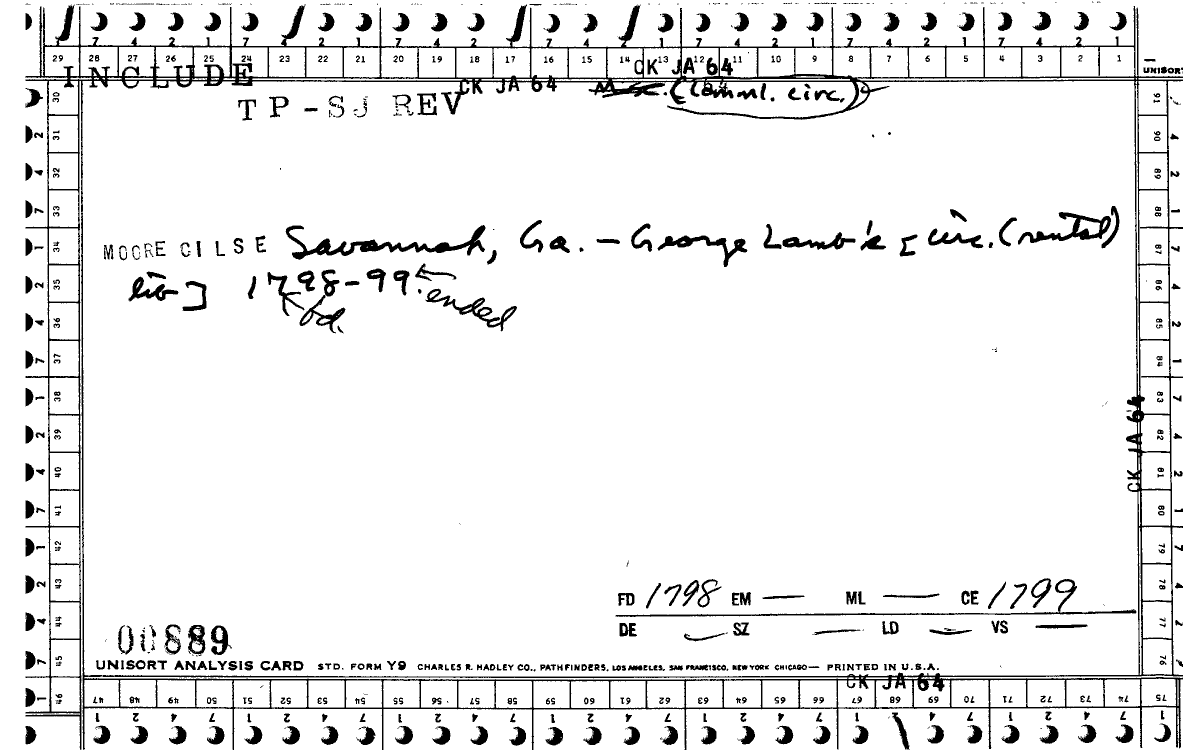 7 4 2 1 7 4 2 1 7 4 2 1 7 4 2 1 7 4 2 1 7 4 2 1
29 28 27 26 25 24 23 22 21 20 19 18 17 16 15 14 13 12 11 10 9 8 7 6 5 4 3 2 1
UNISORT
INCLUDE
CK JA 64
TP-SJ REV
CK JA 64
(Comml. circ.)
MOORE CILSE Savannah, Ga. - George Lamb's [circ. (rental)
lib] 1798-99. ended
fd.
CK JA 64
FD 1798 EM — ML — CE 1799
DE SZ — LD — VS —
00889
UNISORT ANALYSIS CARD STD. FORM Y9 CHARLES R. HADLEY CO., PATHFINDERS, LOS ANGELES, SAN FRANCISCO, NEW YORK CHICAGO — PRINTED IN U.S.A.
CK JA 64
30 31 32 33 34 35 36 37 38 39 40 41 42 43 44 45 46
47 48 49 50 51 52 53 54 55 56 57 58 59 60 61 62 63 64 65 66 67 68 69 70 71 72 73 74 75
76 77 78 79 80 81 82 83 84 85 86 87 88 89 90 91